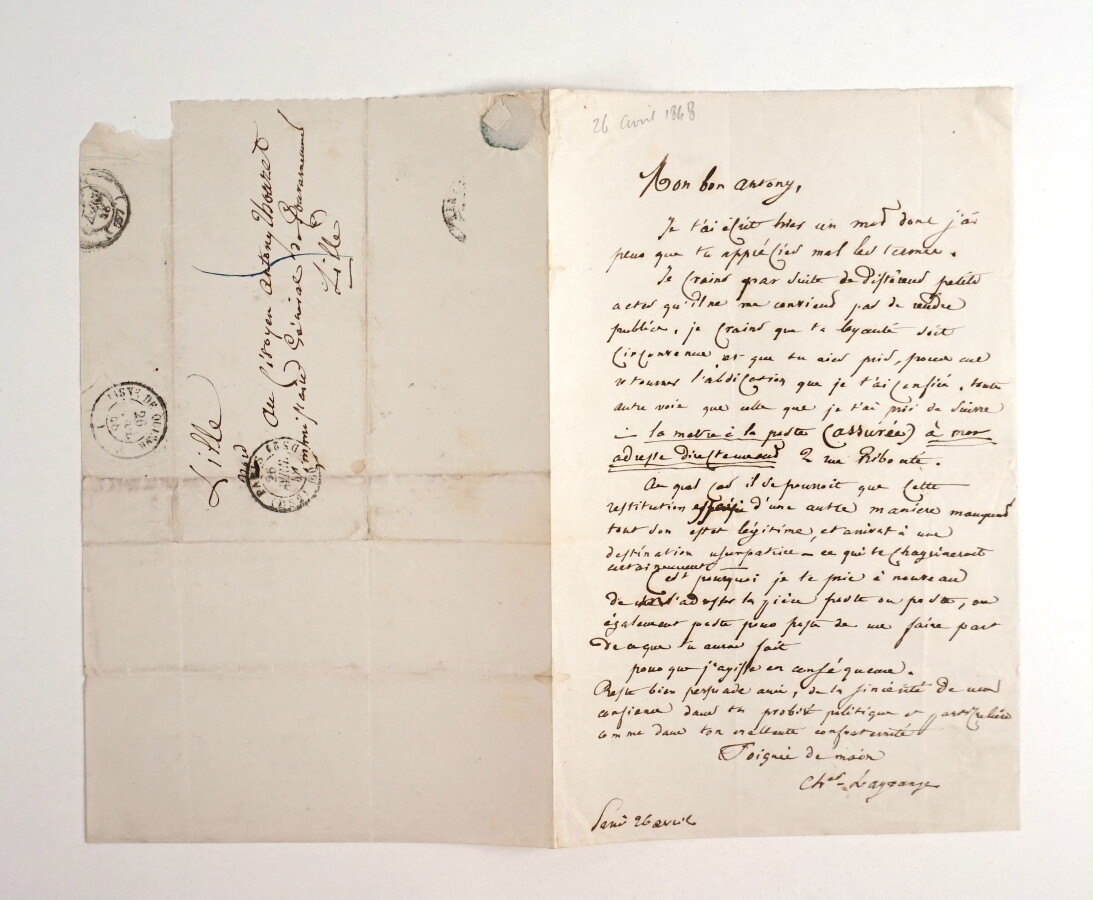 26 avril 1868
Mon bon Antony,
Je t'ai écrit hier un mot dont j'ai
peur que tu appréCies mal les termes.
Je Crains par suite de différens petits
actes qu'il ne me convient pas de rendre
publics, je crains que ta loyauté soit
Circonvenue et que tu aies pris, pour me
retourner l'abdication que je t'ai confiée, toute
autre voie que celle que je t'ai prié de suivre
— la mettre à la poste (assurée) à mon
adresse directement 2 rue Ribouté.
Au quel Cas il se pourroit que Cette
restitution d'une autre manière manquat
tout son effet légitime, et arrivat à une
destination usurpatrice — ce qui te Chagrineroit
certainement
C'est pourquoi je te prie à nouveau
de m'adresser la pièce poste ou poste, ou
également poste pour poste de me faire part
de ce que tu auras fait
pour que j'agisse en conséquence.
Reste bien persuadé ami, de la sincérité de ma
confiance dans ta probité politique et particulière
comme dans ton excellente confraternité
Poignée de main
Ches. Lagrange
26 avril
Au Citoyen Antony Thouret
Commissaire Général du Gouvernement
Lille
Lille
Nord
PARIS
26
LIGNE DE
26